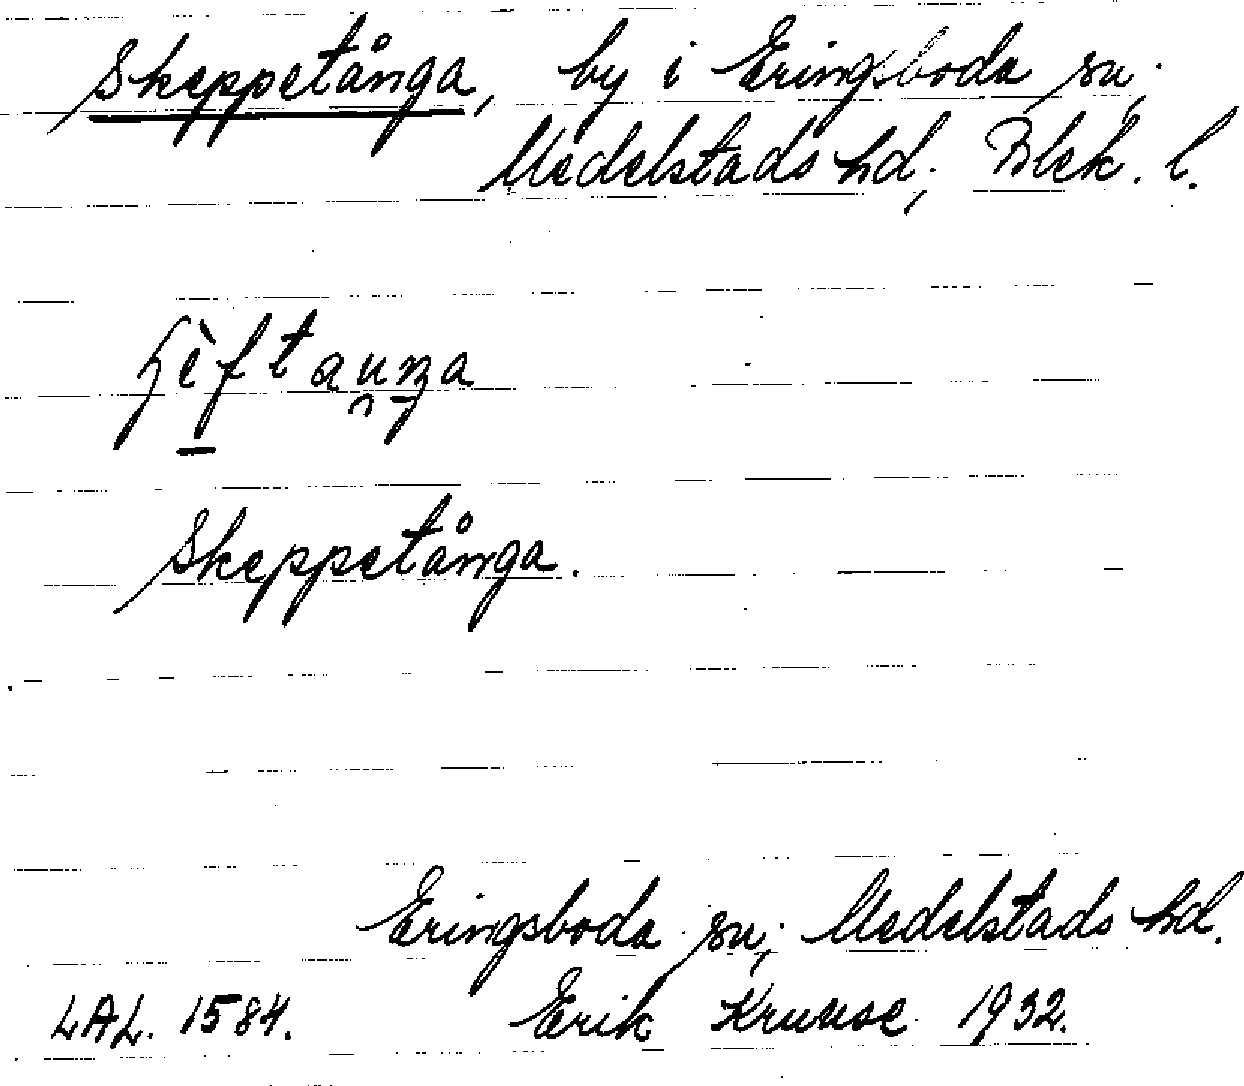 Skeppetånga, by i Eringsboda sn;
Medelstads hd; Blek. l.
Skeppetånga.
Eringsboda sn; Medelstads hd.
LAL. 1584. Erik Kruuse 1932.